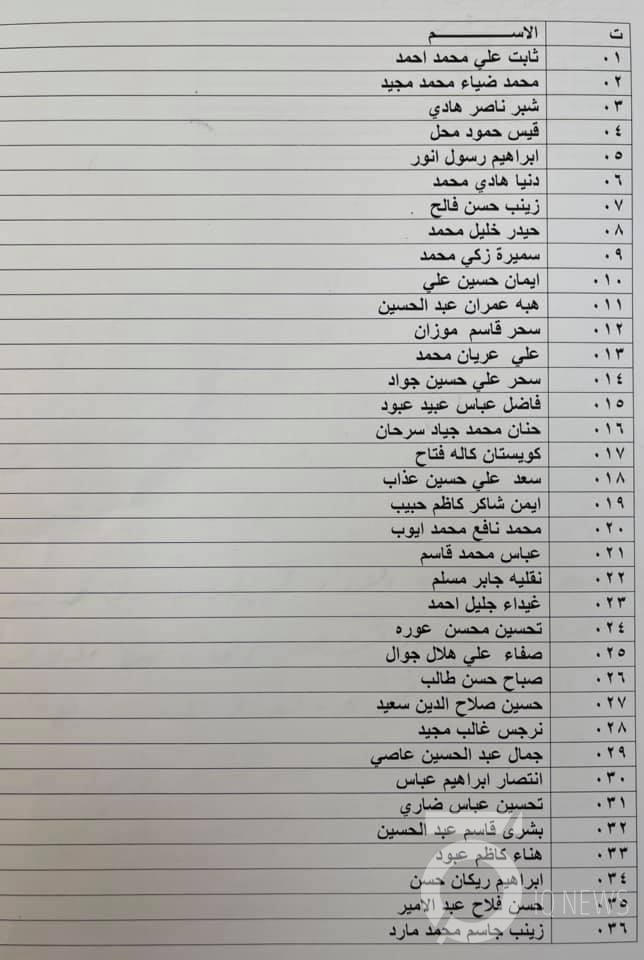 ت الاســـــــــم
٠١ ثابت علي محمد احمد
٠٢ محمد ضياء محمد مجيد
٠٣ شبر ناصر هادي
٠٤ قيس حمود محل
٠٥ ابراهيم رسول انور
٠٦ دنيا هادي محمد
٠٧ زينب حسن فالح
٠٨ حيدر خليل محمد
٠٩ سميرة زكي محمد
٠١٠ ايمان حسين علي
٠١١ هبه عمران عبد الحسين
٠١٢ سحر قاسم موزان
٠١٣ علي عريان محمد
٠١٤ سحر علي حسين جواد
٠١٥ فاضل عباس عبيد عبود
٠١٦ حنان محمد جياد سرحان
٠١٧ كويستان كاله فتاح
٠١٨ سعد علي حسين عذاب
٠١٩ ايمن شاكر كاظم حبيب
٠٢٠ محمد نافع محمد ايوب
٠٢١ عباس محمد قاسم
٠٢٢ نقليه جابر مسلم
٠٢٣ غيداء جليل احمد
٠٢٤ تحسين محسن عوره
٠٢٥ صفاء علي هلال جوال
٠٢٦ صباح حسن طالب
٠٢٧ حسين صلاح الدين سعيد
٠٢٨ نرجس غالب مجيد
٠٢٩ جمال عبد الحسين عاصي
٠٣٠ انتصار ابراهيم عباس
٠٣١ تحسين عباس ضاري
٠٣٢ بشرى قاسم عبد الحسين
٠٣٣ هناء كاظم عبود
٠٣٤ ابراهيم ريكان حسن
٠٣٥ حسن فلاح عبد الامير
٠٣٦ زينب جاسم محمد مارد
IQ NEWS